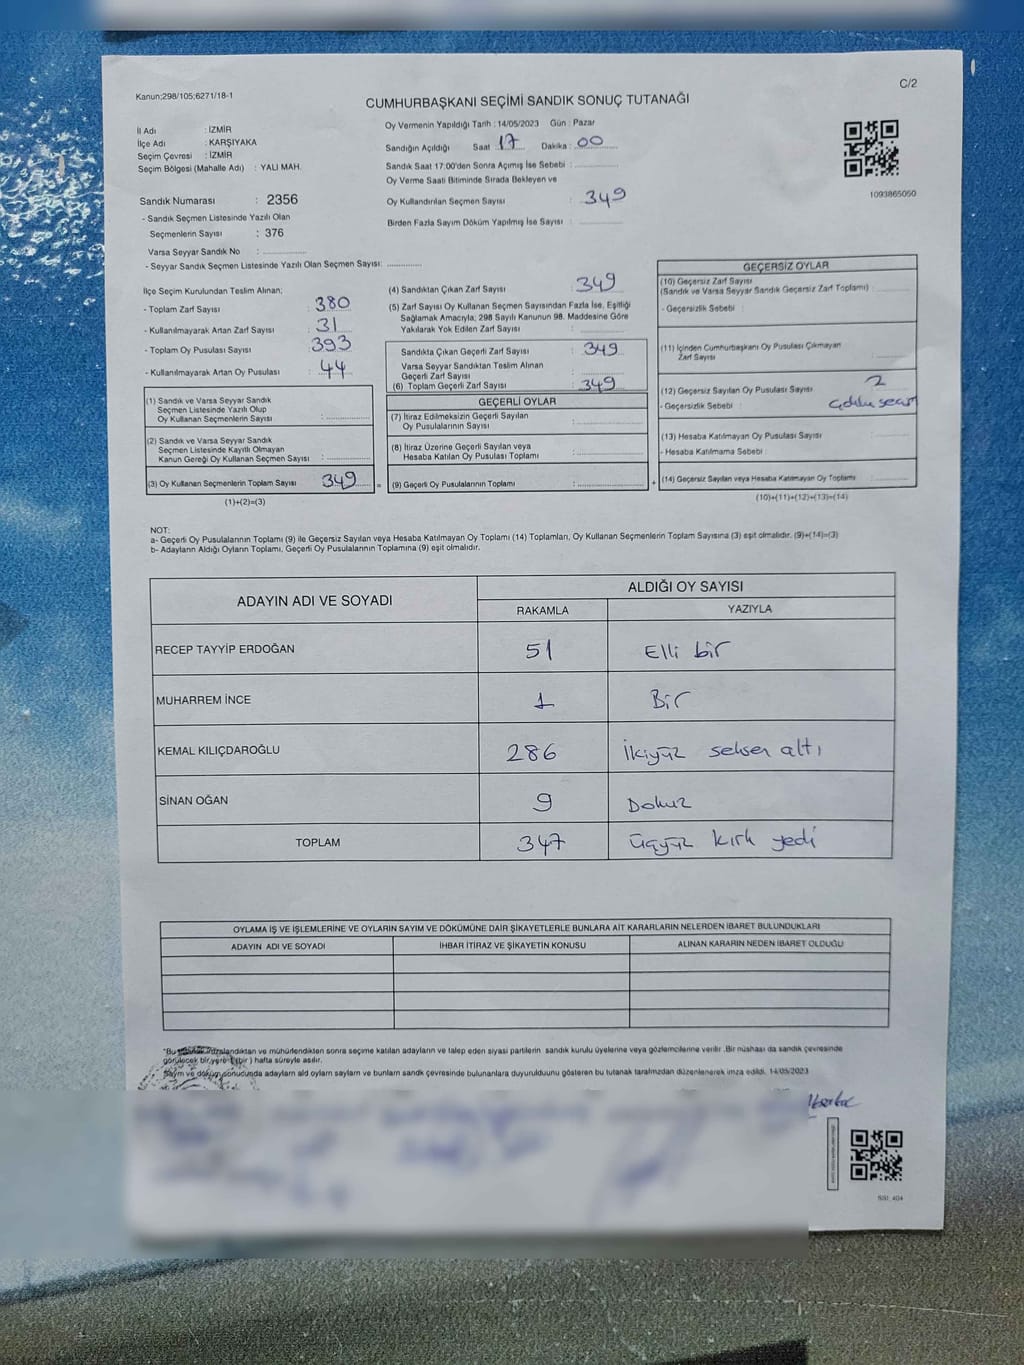 Kanun;298/105;6271/18-1
C/2
CUMHURBAŞKANI SEÇİMİ SANDIK SONUÇ TUTANAĞI
İl Adı : İZMİR
İlçe Adı : KARŞIYAKA
Seçim Çevresi : İZMİR
Seçim Bölgesi (Mahalle Adı) : YALI MAH.
Sandık Numarası : 2356
- Sandık Seçmen Listesinde Yazılı Olan
Seçmenlerin Sayısı : 376
Varsa Seyyar Sandık No :
- Seyyar Sandık Seçmen Listesinde Yazılı Olan Seçmen Sayısı:
Oy Vermenin Yapıldığı Tarih : 14/05/2023 Gün : Pazar
Sandığın Açıldığı Saat : 17 Dakika : 00
Sandık Saat 17:00'den Sonra Açılmış İse Sebebi :
Oy Verme Saati Bitiminde Sırada Bekleyen ve
Oy Kullandırılan Seçmen Sayısı : 349
Birden Fazla Sayım Döküm Yapılmış İse Sayısı :
1093865050
İlçe Seçim Kurulundan Teslim Alınan;
- Toplam Zarf Sayısı : 380
- Kullanılmayarak Artan Zarf Sayısı : 31
- Toplam Oy Pusulası Sayısı : 393
- Kullanılmayarak Artan Oy Pusulası : 44
(1) Sandık ve Varsa Seyyar Sandık
Seçmen Listesinde Yazılı Olup
Oy Kullanan Seçmenlerin Sayısı :
(2) Sandık ve Varsa Seyyar Sandık
Seçmen Listesinde Kayıtlı Olmayan
Kanun Gereği Oy Kullanan Seçmen Sayısı :
(3) Oy Kullanan Seçmenlerin Toplam Sayısı : 349 =
(1)+(2)=(3)
(4) Sandıktan Çıkan Zarf Sayısı : 349
(5) Zarf Sayısı Oy Kullanan Seçmen Sayısından Fazla İse, Eşitliği
Sağlamak Amacıyla; 298 Sayılı Kanunun 98. Maddesine Göre
Yakılarak Yok Edilen Zarf Sayısı :
Sandıkta Çıkan Geçerli Zarf Sayısı : 349
Varsa Seyyar Sandıktan Teslim Alınan
Geçerli Zarf Sayısı :
(6) Toplam Geçerli Zarf Sayısı : 349
GEÇERLİ OYLAR
(7) İtiraz Edilmeksizin Geçerli Sayılan
Oy Pusulalarının Sayısı :
(8) İtiraz Üzerine Geçerli Sayılan veya
Hesaba Katılan Oy Pusulası Toplamı :
(9) Geçerli Oy Pusulalarının Toplamı : +
GEÇERSİZ OYLAR
(10) Geçersiz Zarf Sayısı
(Sandık ve Varsa Seyyar Sandık Geçersiz Zarf Toplamı) :
- Geçersizlik Sebebi :
(11) İçinden Cumhurbaşkanı Oy Pusulası Çıkmayan
Zarf Sayısı :
(12) Geçersiz Sayılan Oy Pusulası Sayısı : 2
- Geçersizlik Sebebi :
(13) Hesaba Katılmayan Oy Pusulası Sayısı :
- Hesaba Katılmama Sebebi :
(14) Geçersiz Sayılan veya Hesaba Katılmayan Oy Toplamı :
(10)+(11)+(12)+(13)=(14)
NOT:
a- Geçerli Oy Pusulalarının Toplamı (9) ile Geçersiz Sayılan veya Hesaba Katılmayan Oy Toplamı (14) Toplamları, Oy Kullanan Seçmenlerin Toplam Sayısına (3) eşit olmalıdır. (9)+(14)=(3)
b- Adayların Aldığı Oyların Toplamı, Geçerli Oy Pusulalarının Toplamına (9) eşit olmalıdır.
ADAYIN ADI VE SOYADI
ALDIĞI OY SAYISI
RAKAMLA YAZIYLA
RECEP TAYYİP ERDOĞAN 51 Elli bir
MUHARREM İNCE 1 Bir
KEMAL KILIÇDAROĞLU 286 İkiyüz seksen altı
SİNAN OĞAN 9 Dokuz
TOPLAM 347 üçyüz kırk yedi
OYLAMA İŞ VE İŞLEMLERİNE VE OYLARIN SAYIM VE DÖKÜMÜNE DAİR ŞİKAYETLERLE BUNLARA AİT KARARLARIN NELERDEN İBARET BULUNDUKLARI
ADAYIN ADI VE SOYADI İHBAR İTİRAZ VE ŞİKAYETİN KONUSU ALINAN KARARIN NEDEN İBARET OLDUĞU
ve mühürlendikten sonra seçime katılan adayların ve talep eden siyasi partilerin sandık kurulu üyelerine veya gözlemcilerine verilir. Bir nüshası da sandık çevresinde
görülecek bir yere (bir) hafta süreyle asılır.
Sayım ve döküm sonucunda adayların ald oyların sayıların ve bunların sandık çevresinde bulunanlara duyurulduunu gösteren bu tutanak tarafımızdan düzenlenerek imza edildi. 14/05/2023